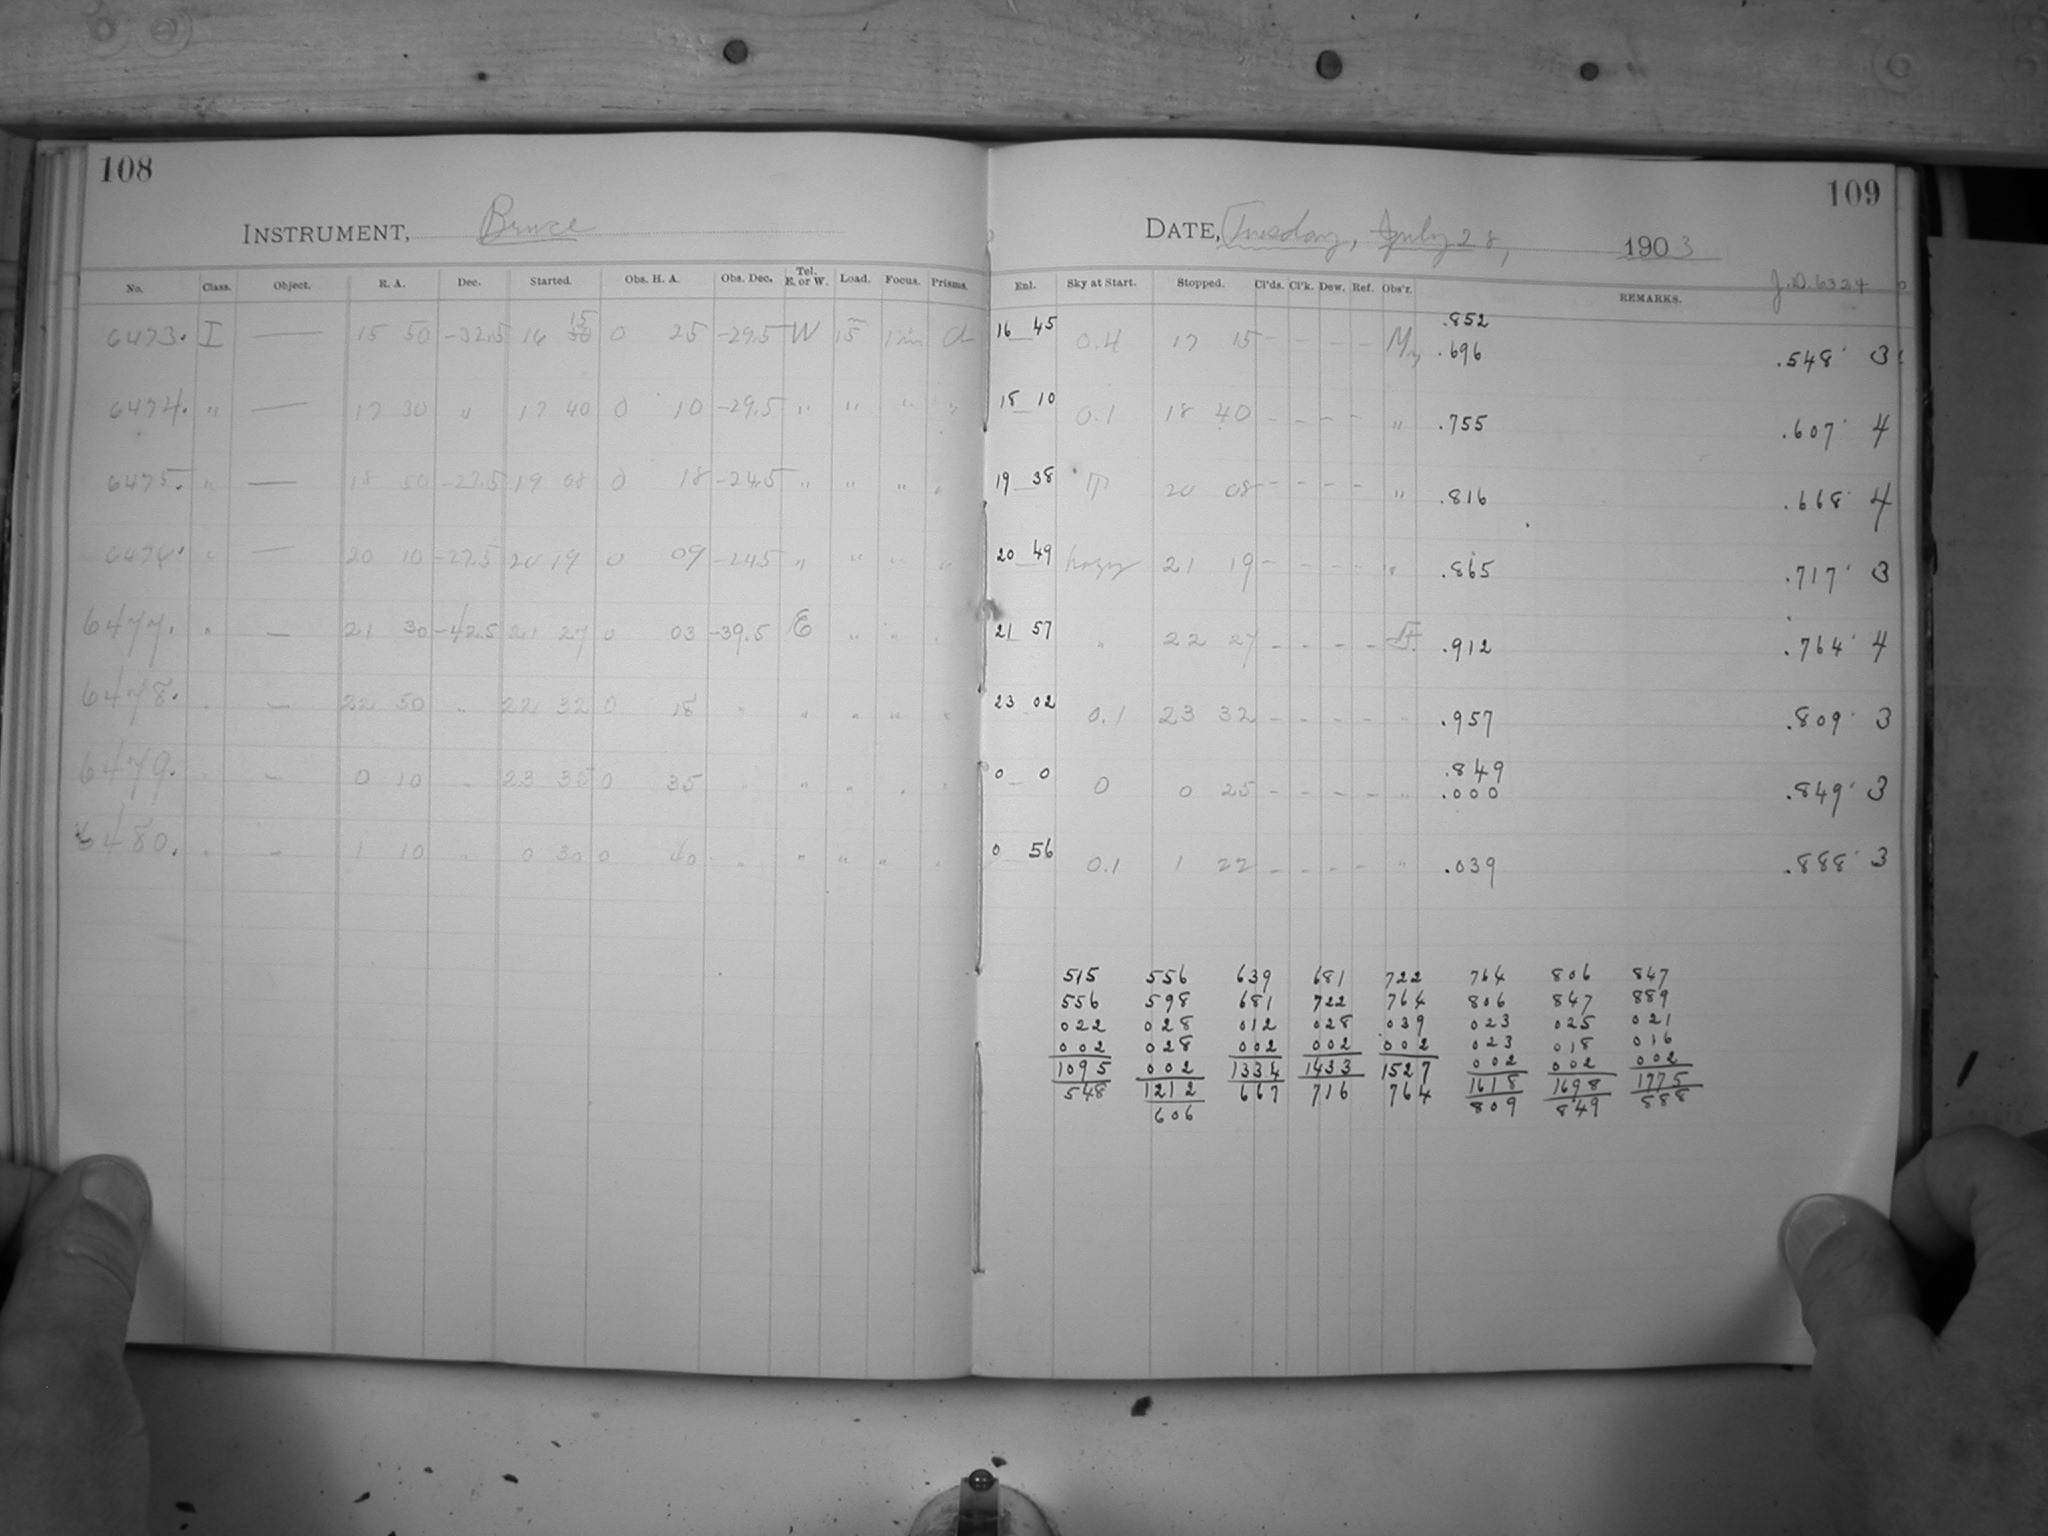 108
INSTRUMENT, Bruce
No. Class. Object. R. A. Dec. Started. Obs. H. A. Obs. Dec. Tel. E. or W. Load. Focus. Prisms.
6473. I — 15 50 -32.5 16 15 0 25 -29.5 W 15
6474. " — 17 30 " 17 40 0 10 -29.5 " " " "
6475. " — 18 50 -27.5 19 08 0 18 -24.5 " " " "
6476. " — 20 10 -27.5 20 19 0 09 -24.5 " " " "
6477. " — 21 30 -42.5 21 27 0 03 -39.5 E " " "
6478. " — 22 50 " 22 32 0 18 " " " " "
6479. " — 0 10 " 23 35 0 35 " " " " "
6480. " — 1 10 " 0 30 0 40 " " " " "
109
DATE, Tuesday, July 28, 1903
J.D. 6324
Enl. Sky at Start. Stopped. Cl'ds. Cl'k. Dew. Ref. Obs'r. REMARKS.
.852
16 45 0.4 17 15 - - - - .696 .548 3
18 10 0.1 18 40 - - - - " .755 .607 4
19 38 20 08 - - - - " .816 .668 4
20 49 hazy 21 19 - - - - " .865 .717 3
21 57 " 22 27 - - - - .912 .764 4
23 02 0.1 23 32 - - - - " .957 .809 3
.849
0 0 0 0 25 - - - - " .000 .849 3
0 56 0.1 1 22 - - - - " .039 .888 3
515 556 639 681 722 764 806 847
556 598 681 722 764 806 847 889
022 028 012 028 039 023 025 021
002 028 002 002 002 023 018 016
1095 002 1334 1433 1527 002 002 002
548 1212 667 716 764 1618 1698 1775
606 809 849 888